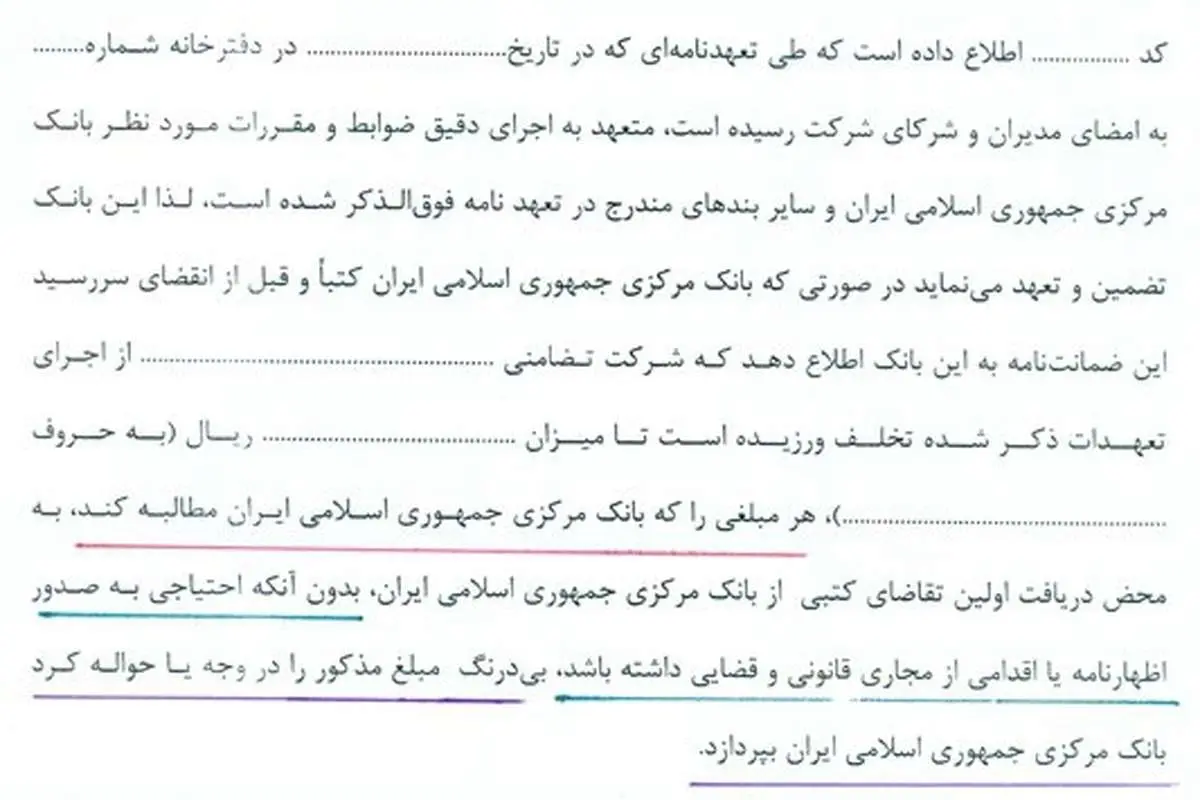 کد ................ اطلاع داده است که طی تعهدنامه‌ای که در تاریخ................................ در دفترخانه شماره........
به امضای مدیران و شرکای شرکت رسیده است، متعهد به اجرای دقیق ضوابط و مقررات مورد نظر بانک
مرکزی جمهوری اسلامی ایران و سایر بندهای مندرج در تعهد نامه فوق‌الذکر شده است، لذا این بانک
تضمین و تعهد می‌نماید در صورتی که بانک مرکزی جمهوری اسلامی ایران کتباً و قبل از انقضای سررسید
این ضمانت‌نامه به این بانک اطلاع دهد که شرکت تضامنی ........................................................ از اجرای
تعهدات ذکر شده تخلف ورزیده است تا میزان ........................................ ریال (به حروف
....................................................)، هر مبلغی را که بانک مرکزی جمهوری اسلامی ایران مطالبه کند، به
محض دریافت اولین تقاضای کتبی از بانک مرکزی جمهوری اسلامی ایران، بدون آنکه احتیاجی به صدور
اظهارنامه یا اقدامی از مجاری قانونی و قضایی داشته باشد، بی‌درنگ مبلغ مذکور را در وجه یا حواله کرد
بانک مرکزی جمهوری اسلامی ایران بپردازد.